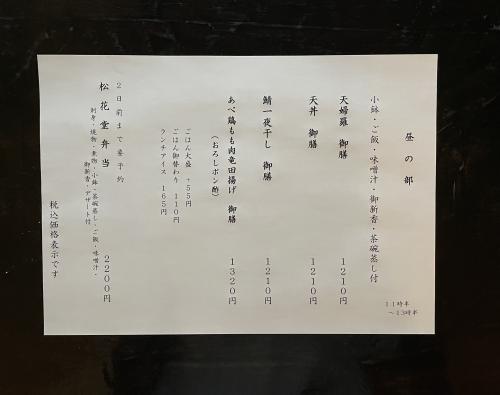 昼の部
11時半
~13時半
小鉢・ご飯・味噌汁・御新香・茶碗蒸し付
天婦羅 御膳 1210円
天丼 御膳 1210円
鯖一夜干し 御膳 1210円
あべ鶏もも肉竜田揚げ 御膳 1320円
(おろしポン酢)
ごはん大盛 +55円
ごはん御替わり 110円
ランチアイス 165円
2日前まで要予約
松花堂弁当 2200円
刺身・焼物・煮物・小鉢・茶碗蒸し・ご飯・味噌汁・
御新香・デザート付
税込価格表示です